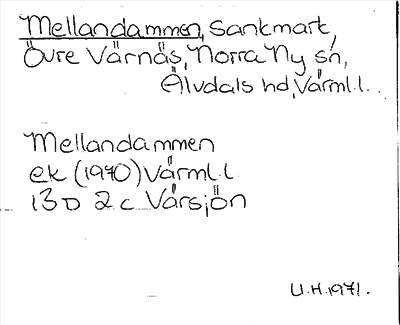 Mellandammen, sankmark,
Övre Värnäs, Norra Ny sn,
Älvdals hd, Värml.l.
Mellandammen
ek (1970) Värml.l.
13D 2c Vårsjön
U.H.1971.